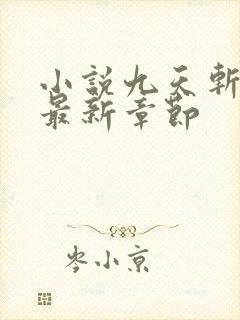 小説九天斬
最新章節
岑小京